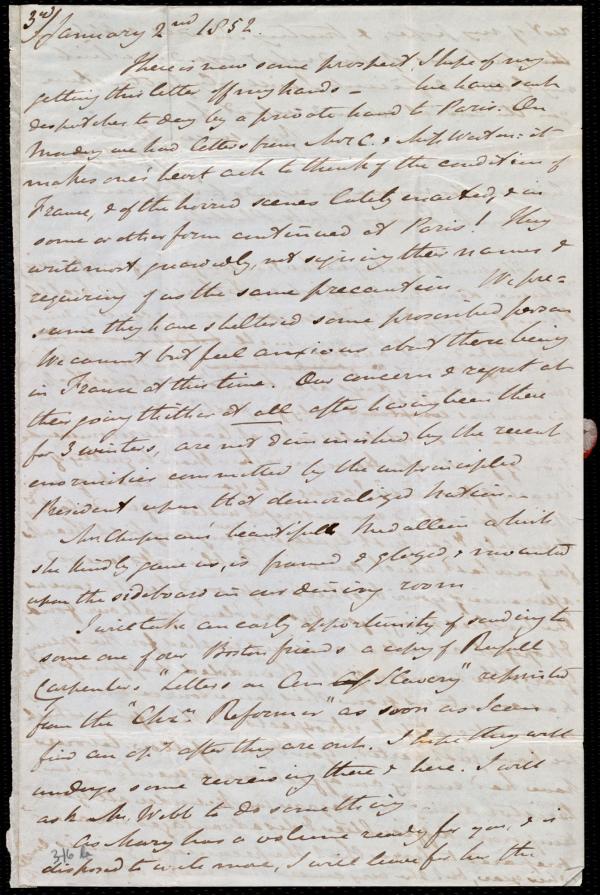 3rd/
January 2nd 1852.
There is now some prospect I hope of my
getting this letter off my hands – We have such
despatches to day by a private hand to Paris. On
Monday we had letters from Mrs C. & Miss Weston: it
makes one's heart ache to think of the condition of
France, & of the horrid scenes lately enacted, & in
some or other form continued at Paris! They
write most guardedly, not signing their names &
requiring of us the same precaution. We pre=
sume they have sheltered some proscribed person
We cannot but feel anxious about there being
in France at this time. Our concern & regret at
their going thither at all after having been there
for 3 winters, are not diminished by the recent
enormities committed by the unprincipled
President upon that demoralized Nation.
Mrs Chapman's beautiful Medallion which
she kindly gave us, is framed & glazed & mounted
upon the sideboard in our dining room
I will take an early opportunity of sending to
some one of our Boston friends a copy of Russell
Carpenter's "Letters on Am Slavery" reprinted
from the "Chrn Reformer" as soon as I can
find an opy after they are out. I hope they will
undergo some reviewing there & here. I will
ask Mr. Webb to do something.
As Mary has a volume ready for you, & is
disposed to write more, I will leave for her the